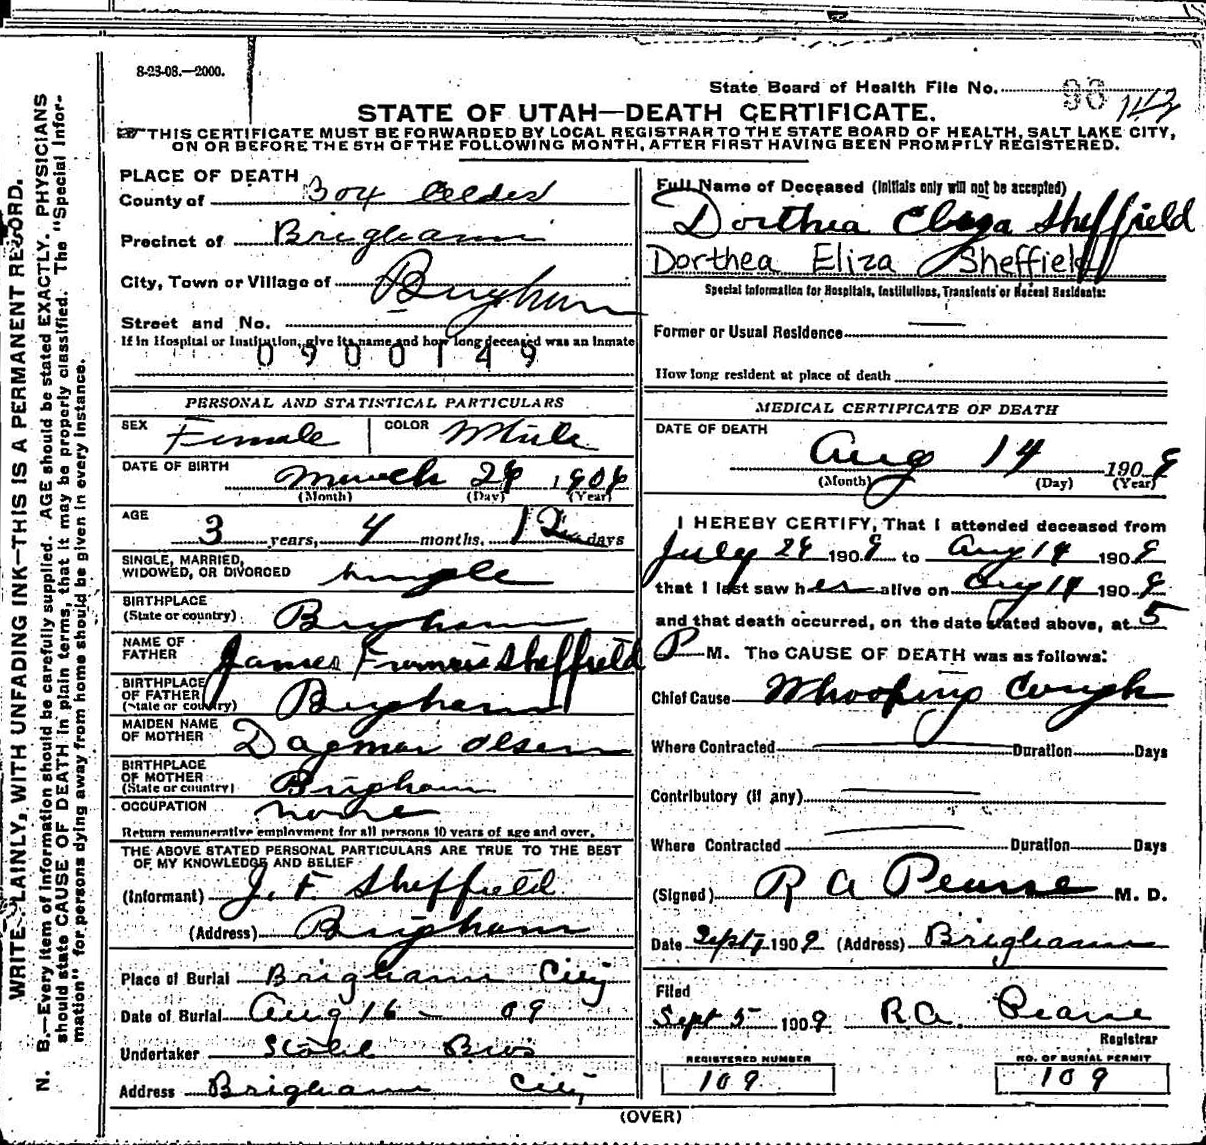 8-23-08.—2000.
State Board of Health File No. 98 143
STATE OF UTAH—DEATH CERTIFICATE.
THIS CERTIFICATE MUST BE FORWARDED BY LOCAL REGISTRAR TO THE STATE BOARD OF HEALTH, SALT LAKE CITY,
ON OR BEFORE THE 5TH OF THE FOLLOWING MONTH, AFTER FIRST HAVING BEEN PROMPTLY REGISTERED.
WRITE PLAINLY, WITH UNFADING INK—THIS IS A PERMANENT RECORD.
N. B.—Every item of information should be carefully supplied. AGE should be stated EXACTLY. PHYSICIANS
should state CAUSE OF DEATH in plain terms, that it may be properly classified. The "Special Infor-
mation" for persons dying away from home should be given in every instance.
PLACE OF DEATH
County of Box Elder
Precinct of Brigham
City, Town or Village of Brigham
Street and No.
If in Hospital or Institution, give its name and how long deceased was an inmate
0900149
PERSONAL AND STATISTICAL PARTICULARS
SEX Female COLOR White
DATE OF BIRTH March 26 1906
(Month) (Day) (Year)
AGE 3 years, 4 months, 12 days
SINGLE, MARRIED,
WIDOWED, OR DIVORCED single
BIRTHPLACE
(State or country) Brigham
NAME OF
FATHER James Francis Sheffield
BIRTHPLACE
OF FATHER
(State or country) Brigham
MAIDEN NAME
OF MOTHER Dagmar Olsen
BIRTHPLACE
OF MOTHER
(State or country) Brigham
OCCUPATION none
Return remunerative employment for all persons 10 years of age and over.
THE ABOVE STATED PERSONAL PARTICULARS ARE TRUE TO THE BEST
OF MY KNOWLEDGE AND BELIEF
(Informant) J. F. Sheffield
(Address) Brigham
Place of Burial Brigham City
Date of Burial Aug 16 - 09
Undertaker Bros
Address Brigham City
Full Name of Deceased (Initials only will not be accepted)
Dorthea Eliza Sheffield
Dorthea Eliza Sheffield
Special Information for Hospitals, Institutions, Transients or Recent Residents:
Former or Usual Residence
How long resident at place of death
MEDICAL CERTIFICATE OF DEATH
DATE OF DEATH
Aug 14 1909
(Month) (Day) (Year)
I HEREBY CERTIFY, That I attended deceased from
July 26 1909 to Aug 14 1909
that I last saw her alive on Aug 14 1909
and that death occurred, on the date stated above, at 5
P M. The CAUSE OF DEATH was as follows:
Chief Cause Whooping Cough
Where Contracted Duration Days
Contributory (if any)
Where Contracted Duration Days
(Signed) R A Pearse M. D.
Date Sept 7 1909 (Address) Brigham
Filed
Sept 5 1909 R.A. Pearse
Registrar
REGISTERED NUMBER
109
NO. OF BURIAL PERMIT
109
(OVER)